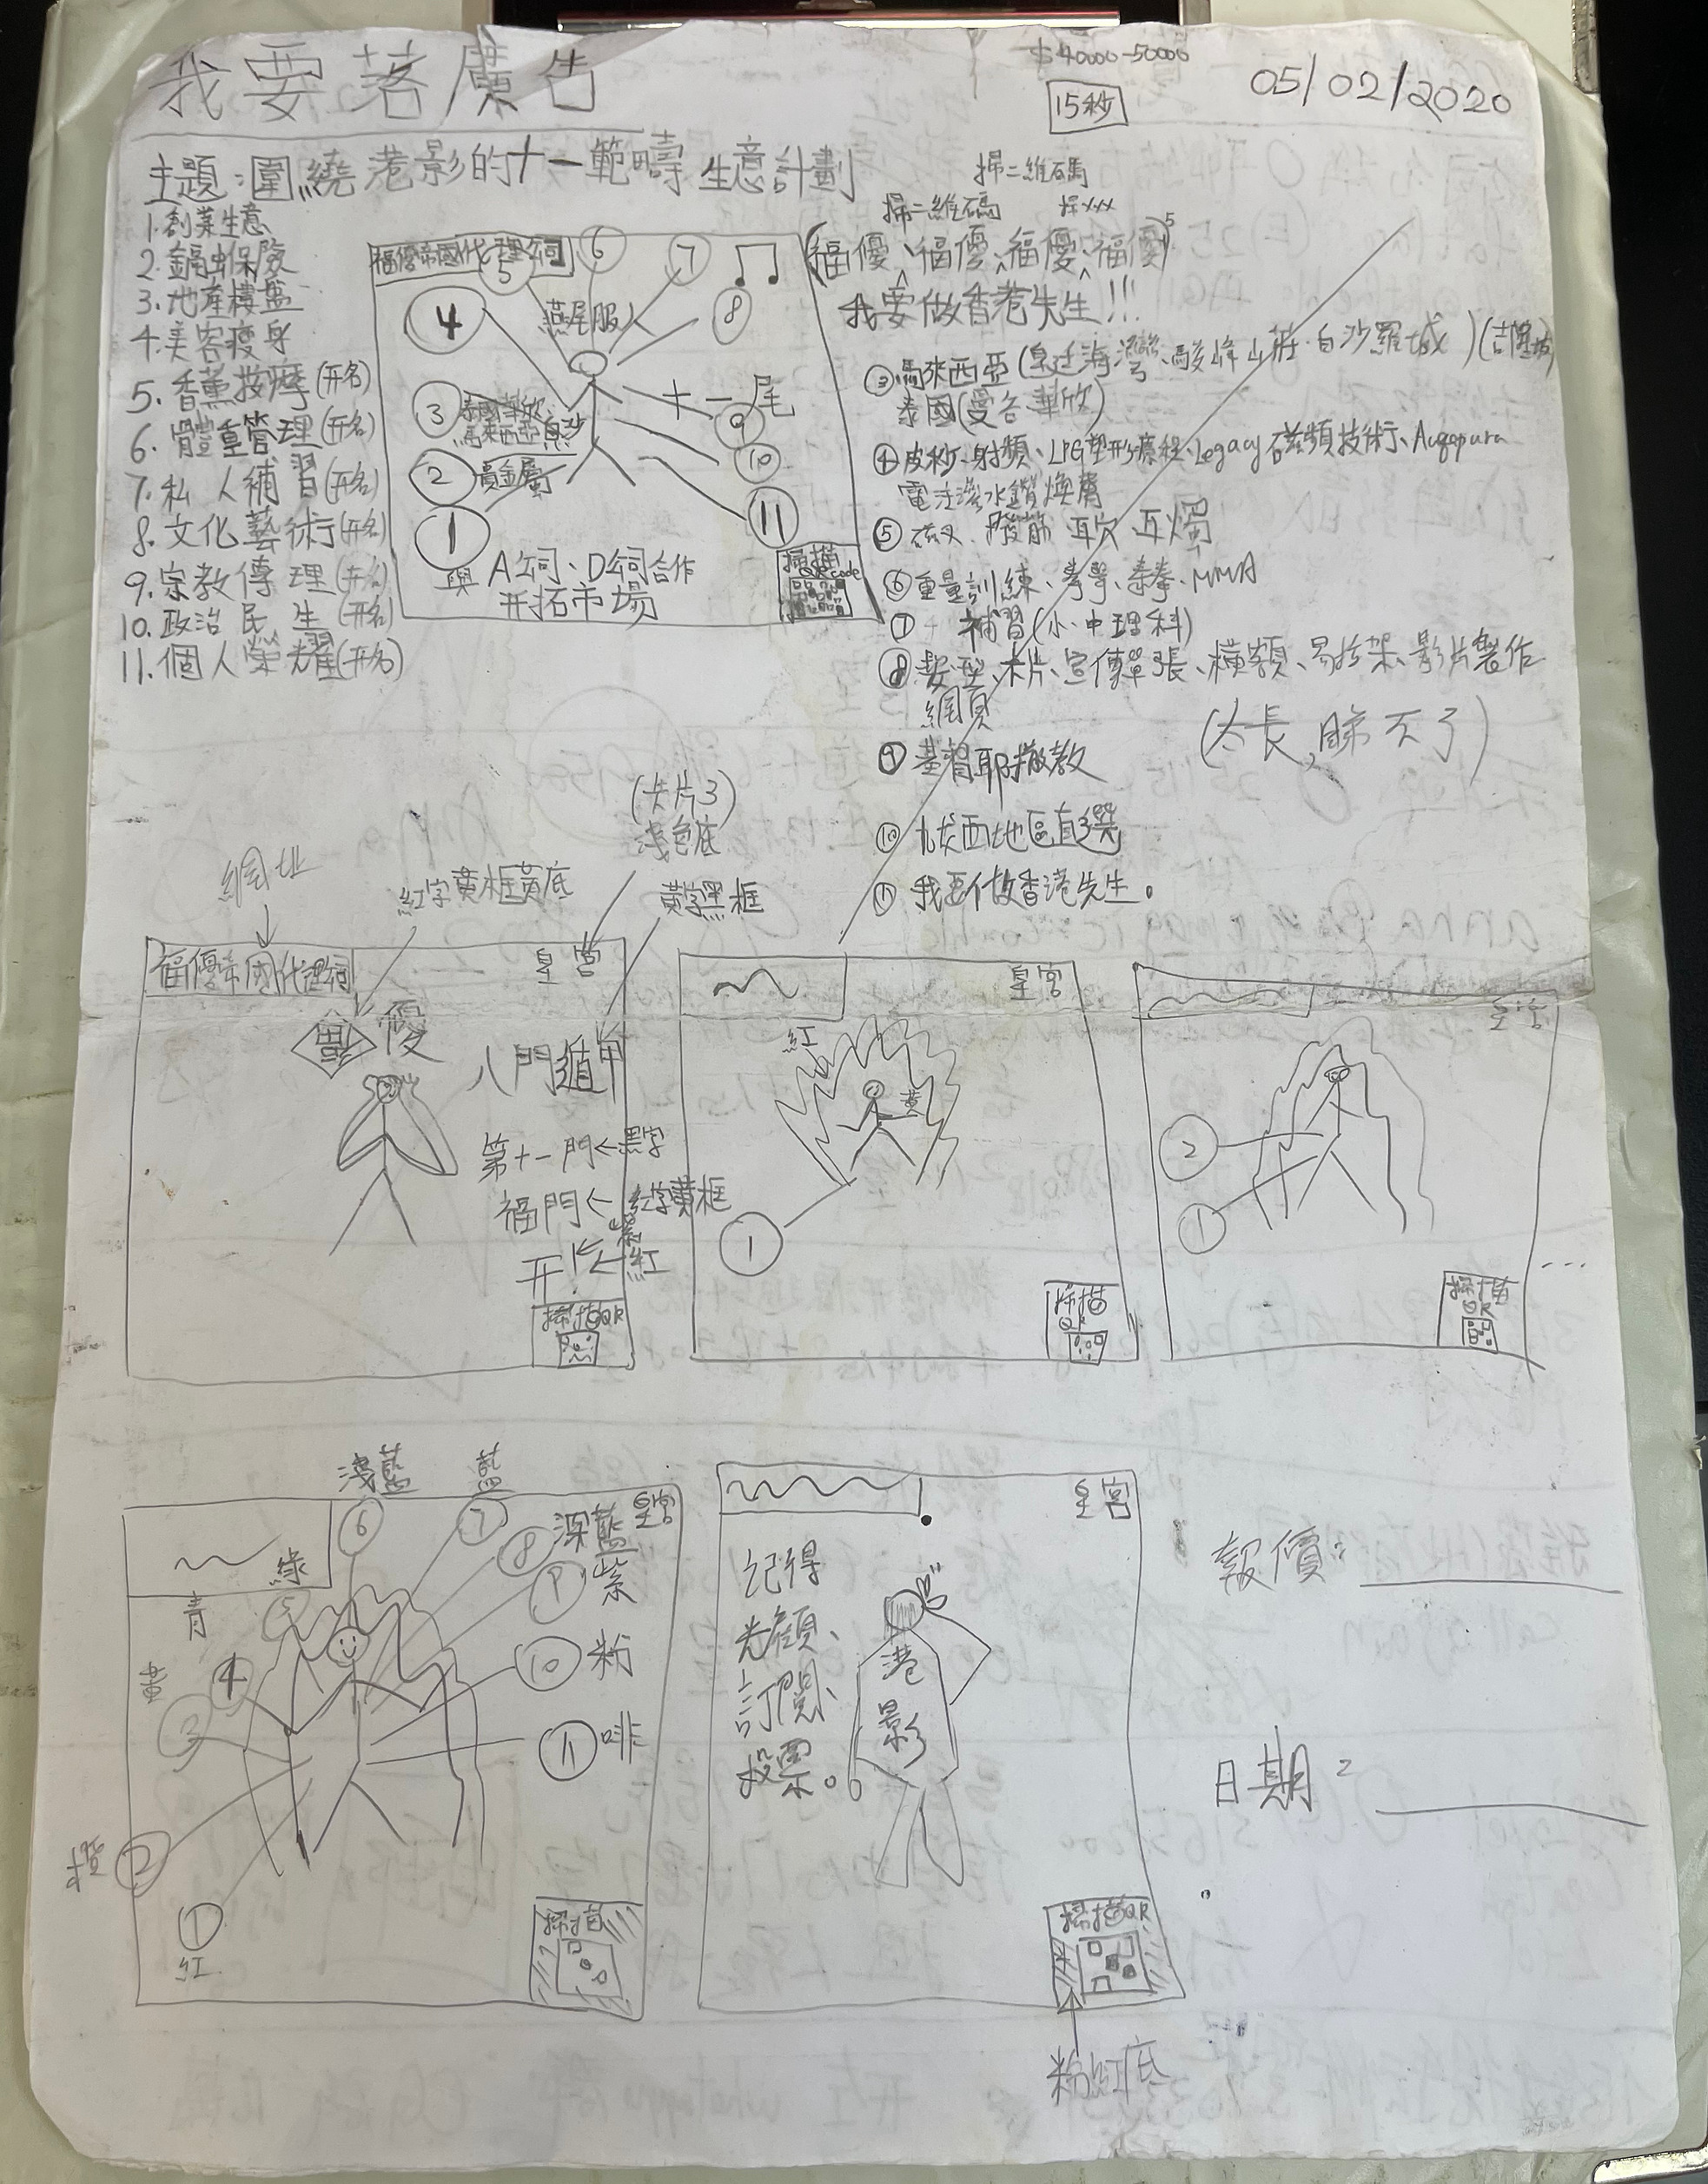 我要落廣告
$40000-50000
15秒
05/02/2020
主題：圍繞港影的十一範疇生意計劃
1.創業生意
2.鎶䖝保險
3.地產樓盤
4.美容瘦身
5.香薰按摩(開名)
6.體重管理(開名)
7.私人補習(開名)
8.文化藝術(開名)
9.宗教傳理(開名)
10.政治民生(開名)
11.個人榮耀(開名)
福優帝國代理公司
5
6
7
4
燕尾服
8
3
泰國華欣
馬來西亞白沙
十一尾
9
2
貴金屬
10
1
11
與A公司、D公司合作
開拓市場
掃描
QR code
掃二維碼
掃二維碼
掃xxx
(福優、福優、福優、福優)5
我要做香港先生!!!
③馬來西亞(皇廷海灣、酸峰山莊、白沙羅城)(吉隆坡)
泰國(曼谷、華欣)
④皮秒、射頻、LPG塑形療程、Legacy磁頻技術、Aquapura
電活滲水鑽煥膚
⑤撥筋 耳穴 耳燭
⑥重量訓練、拳擊、泰拳、MMA
⑦補習(小、中理科)
⑧髮型、卡片、宣傳單張、橫額、易拉架、影片製作
網頁
⑨基督耶撒教
⑩九龍西地區直選
⑪我要做香港先生。
(太長,睇不了)
(卡片3)
淺色底
網址
紅字黃框黃底
黃字黑框
福優帝國代理公司
皇宮
福優
八門遁甲
第十一門←黑字
福門←紅字黃框
開!←紅
掃描QR
皇宮
紅
黃
1
掃描
QR
皇宮
2
1
掃描
QR
...
淺藍
藍
6
7
8
深藍
皇宮
綠
5
9
紫
青
4
10
粉
黃
3
11
啡
橙
2
1
紅
掃描
皇宮
記得
光顧、
訂閱、
投票。
港
影
掃描QR
粉紅底
報價：
日期：